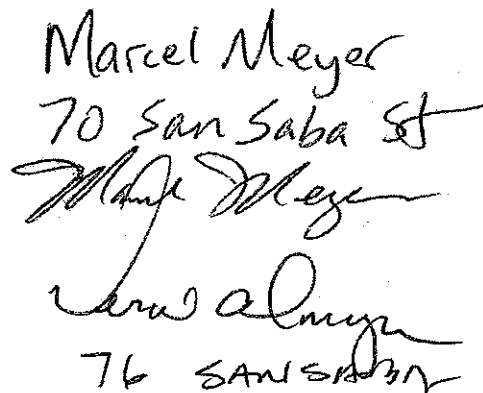 Marcel Meyer
70 San Saba St
Meyer
76 SAN SABA